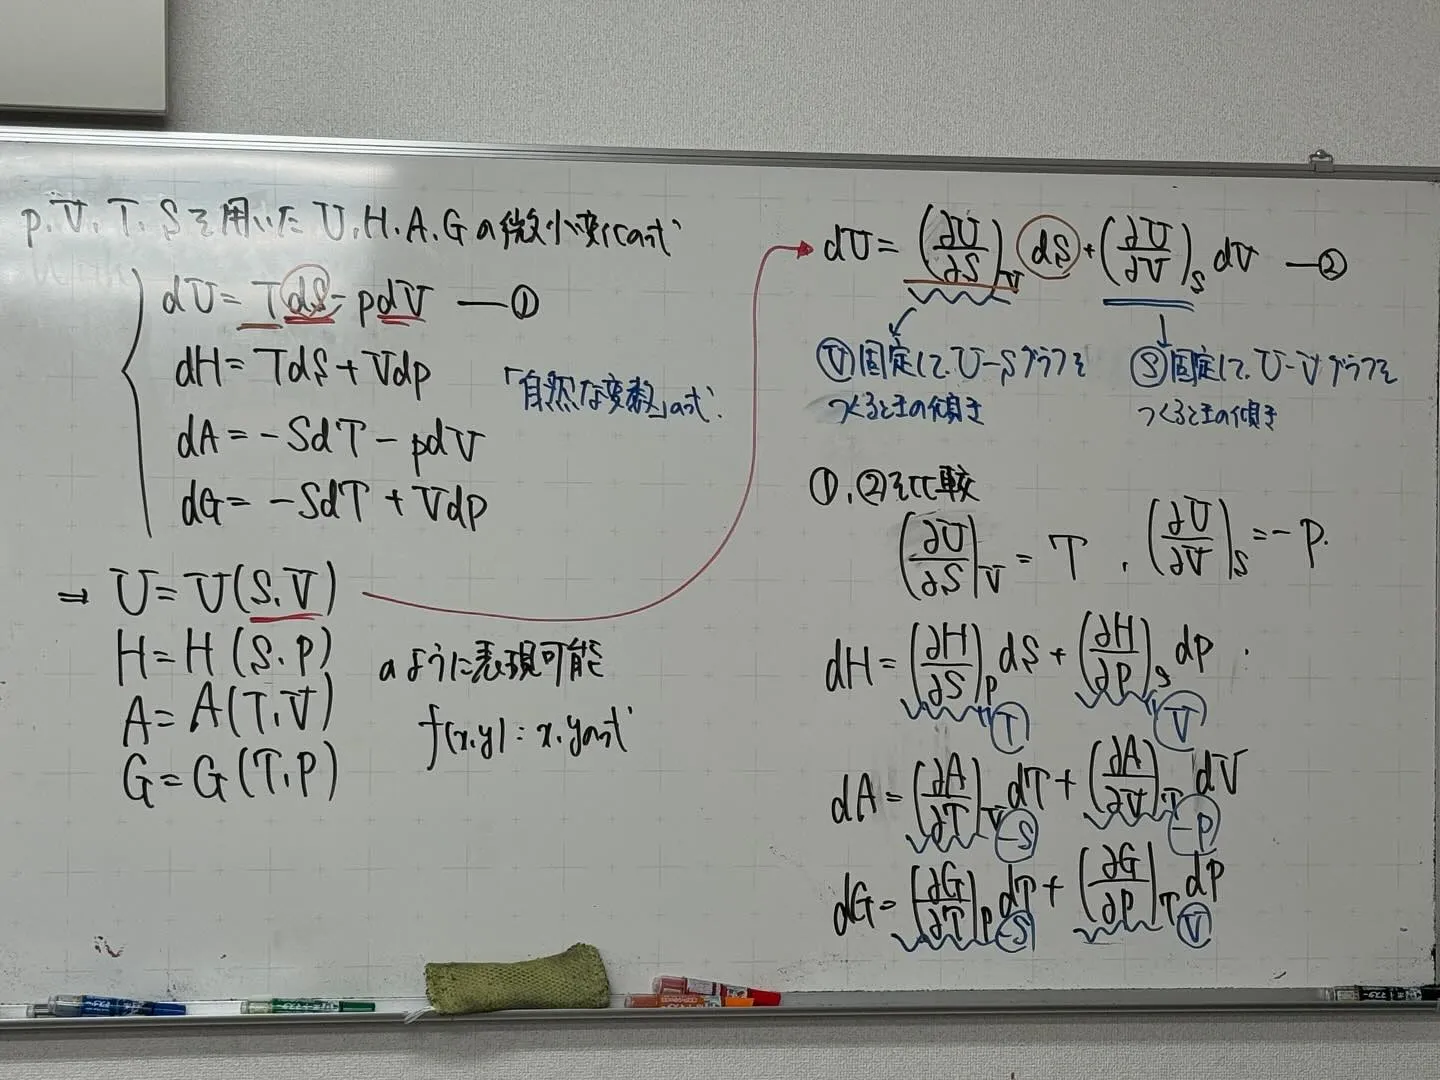 p, V, T, S を用いた U, H, A, G の微小変化の式
dU = TdS - pdV ―①
dH = TdS + Vdp
dA = -SdT - pdV
dG = -SdT + Vdp
「自然な変数」の式.
⇒ U = U(S, V)
H = H(S, P)
A = A(T, V)
G = G(T, P)
のように表現可能
f(x, y) : x, yの式
dU = (∂U/∂S)_V dS + (∂U/∂V)_S dV ―②
Ⓥ固定して、U-Sグラフを
つくるときの傾き
Ⓢ固定して、U-Vグラフを
つくるときの傾き
①, ②を比較
(∂U/∂S)_V = T , (∂U/∂V)_S = -P.
dH = (∂H/∂S)_P dS + (∂H/∂P)_S dP .
T V
dA = (∂A/∂T)_V dT + (∂A/∂V)_T dV
-S -P
dG = (∂G/∂T)_P dT + (∂G/∂P)_T dP
-S V